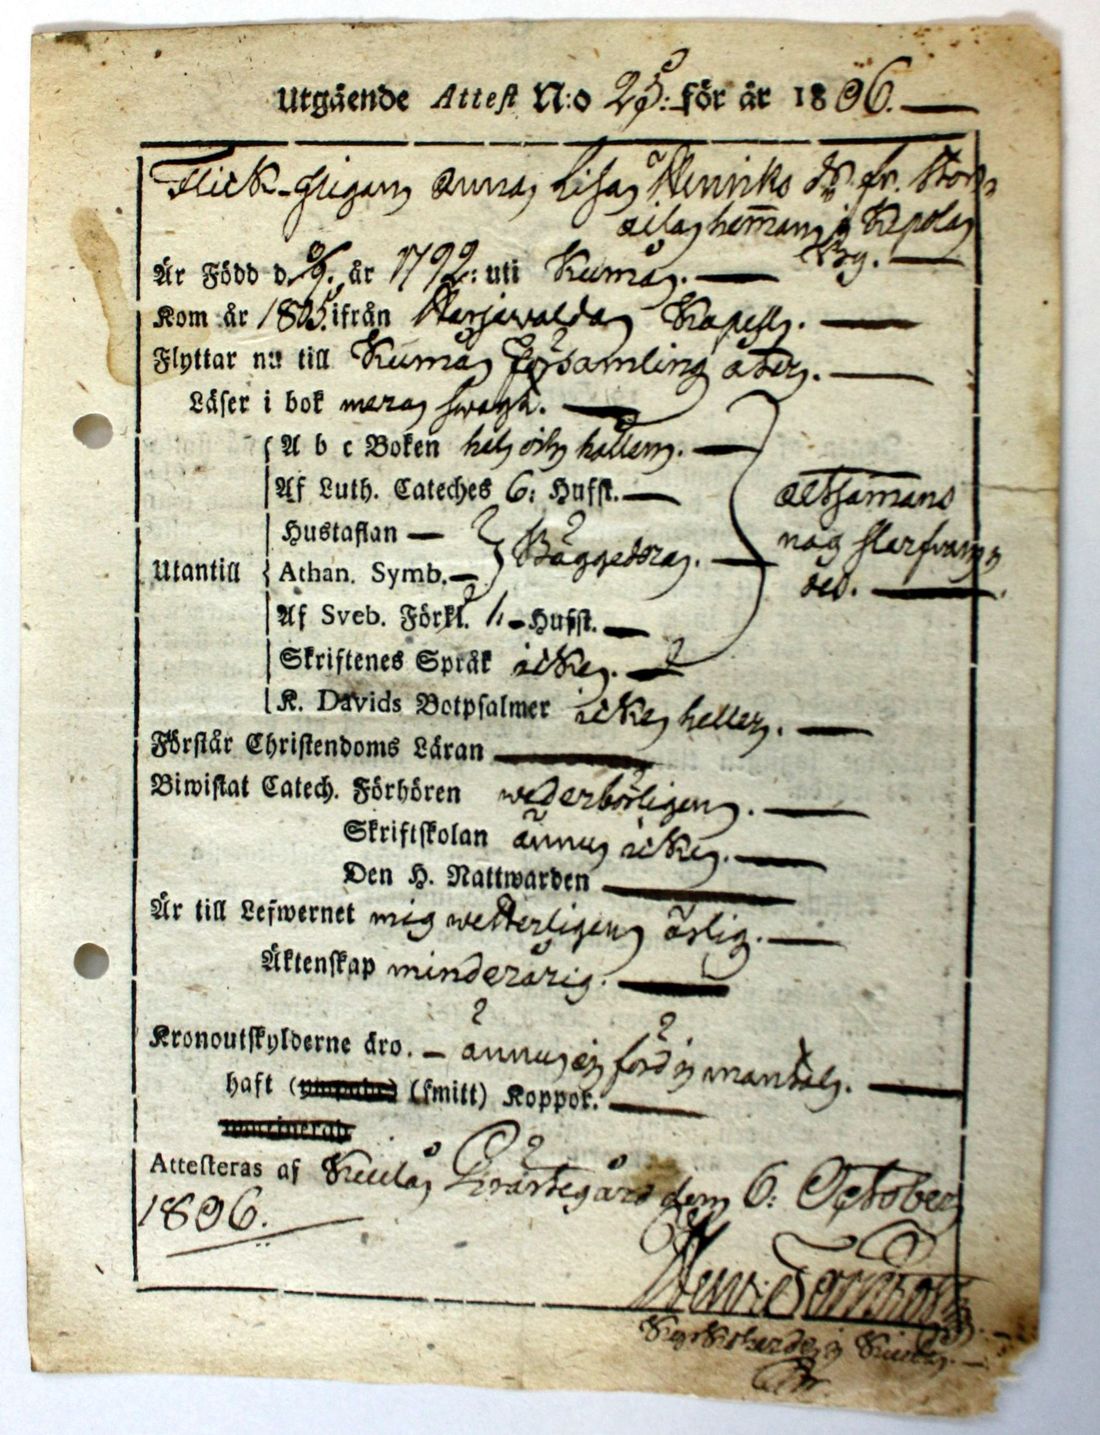 Utgående Attest N:o 25: för år 1806.
Flick-stigan Anna Lisa Henriks dr. fr.
hemman i Kipola
By.
Är Född d. år 1792: uti Kumå.
Kom år 1805 ifrån Harjavalda Kapell.
Flyttar nu till Kumå Församling åter.
Läser i bok mera swagt.
A b c Boken hel och hållen.
Af Luth. Cateches 6: Hufst.
Hustaflan — Bäggedera.
Utantill Athan. Symb.—
altsammans
nog slarfvan
de.
Af Sveb. Förkl. 1.-Hufst.
Skriftenes Språk icke.
K. Davids Botpsalmer icke heller.
Förstår Christendoms Läran
Biwistat Catech. Förhören wederbörligen.
Skriftskolan ännu icke.
Den H. Nattwarden
Är till Lefwernet mig wetterligen ärlig.
Äktenskap minderårig.
Kronoutskylderne äro. — ännu ej förd i mantal.
haft (smitt) Koppor.
Attesteras af Kiulå Prästegård den 6: October
1806.
Kyrkoherde i Kiulå.